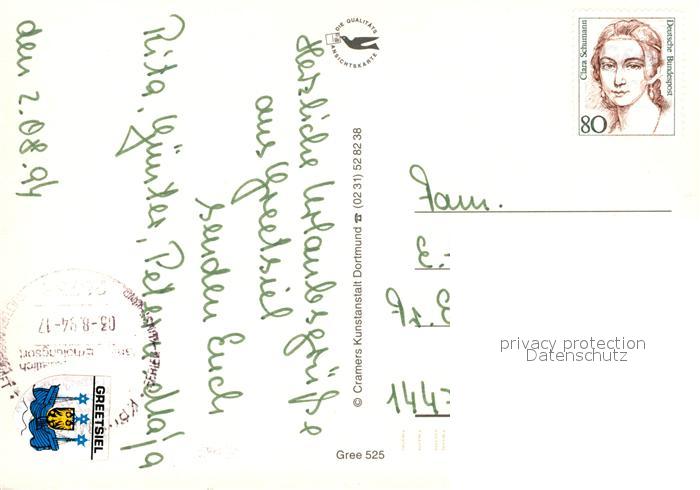 den 2.08.94
Herzliche Urlaubsgrüße
aus Greetsiel
senden Euch
Rita, Günter, Peter u. Maja
DIE QUALITÄTS
ANSICHTSKARTE
© Cramers Kunstanstalt Dortmund ☎ (02 31) 52 82 38
Gree 525
Clara Schumann
Deutsche Bundespost
80
Fam.
144
privacy protection
Datenschutz
03.-8.94-17
Erholungsort
GREETSIEL